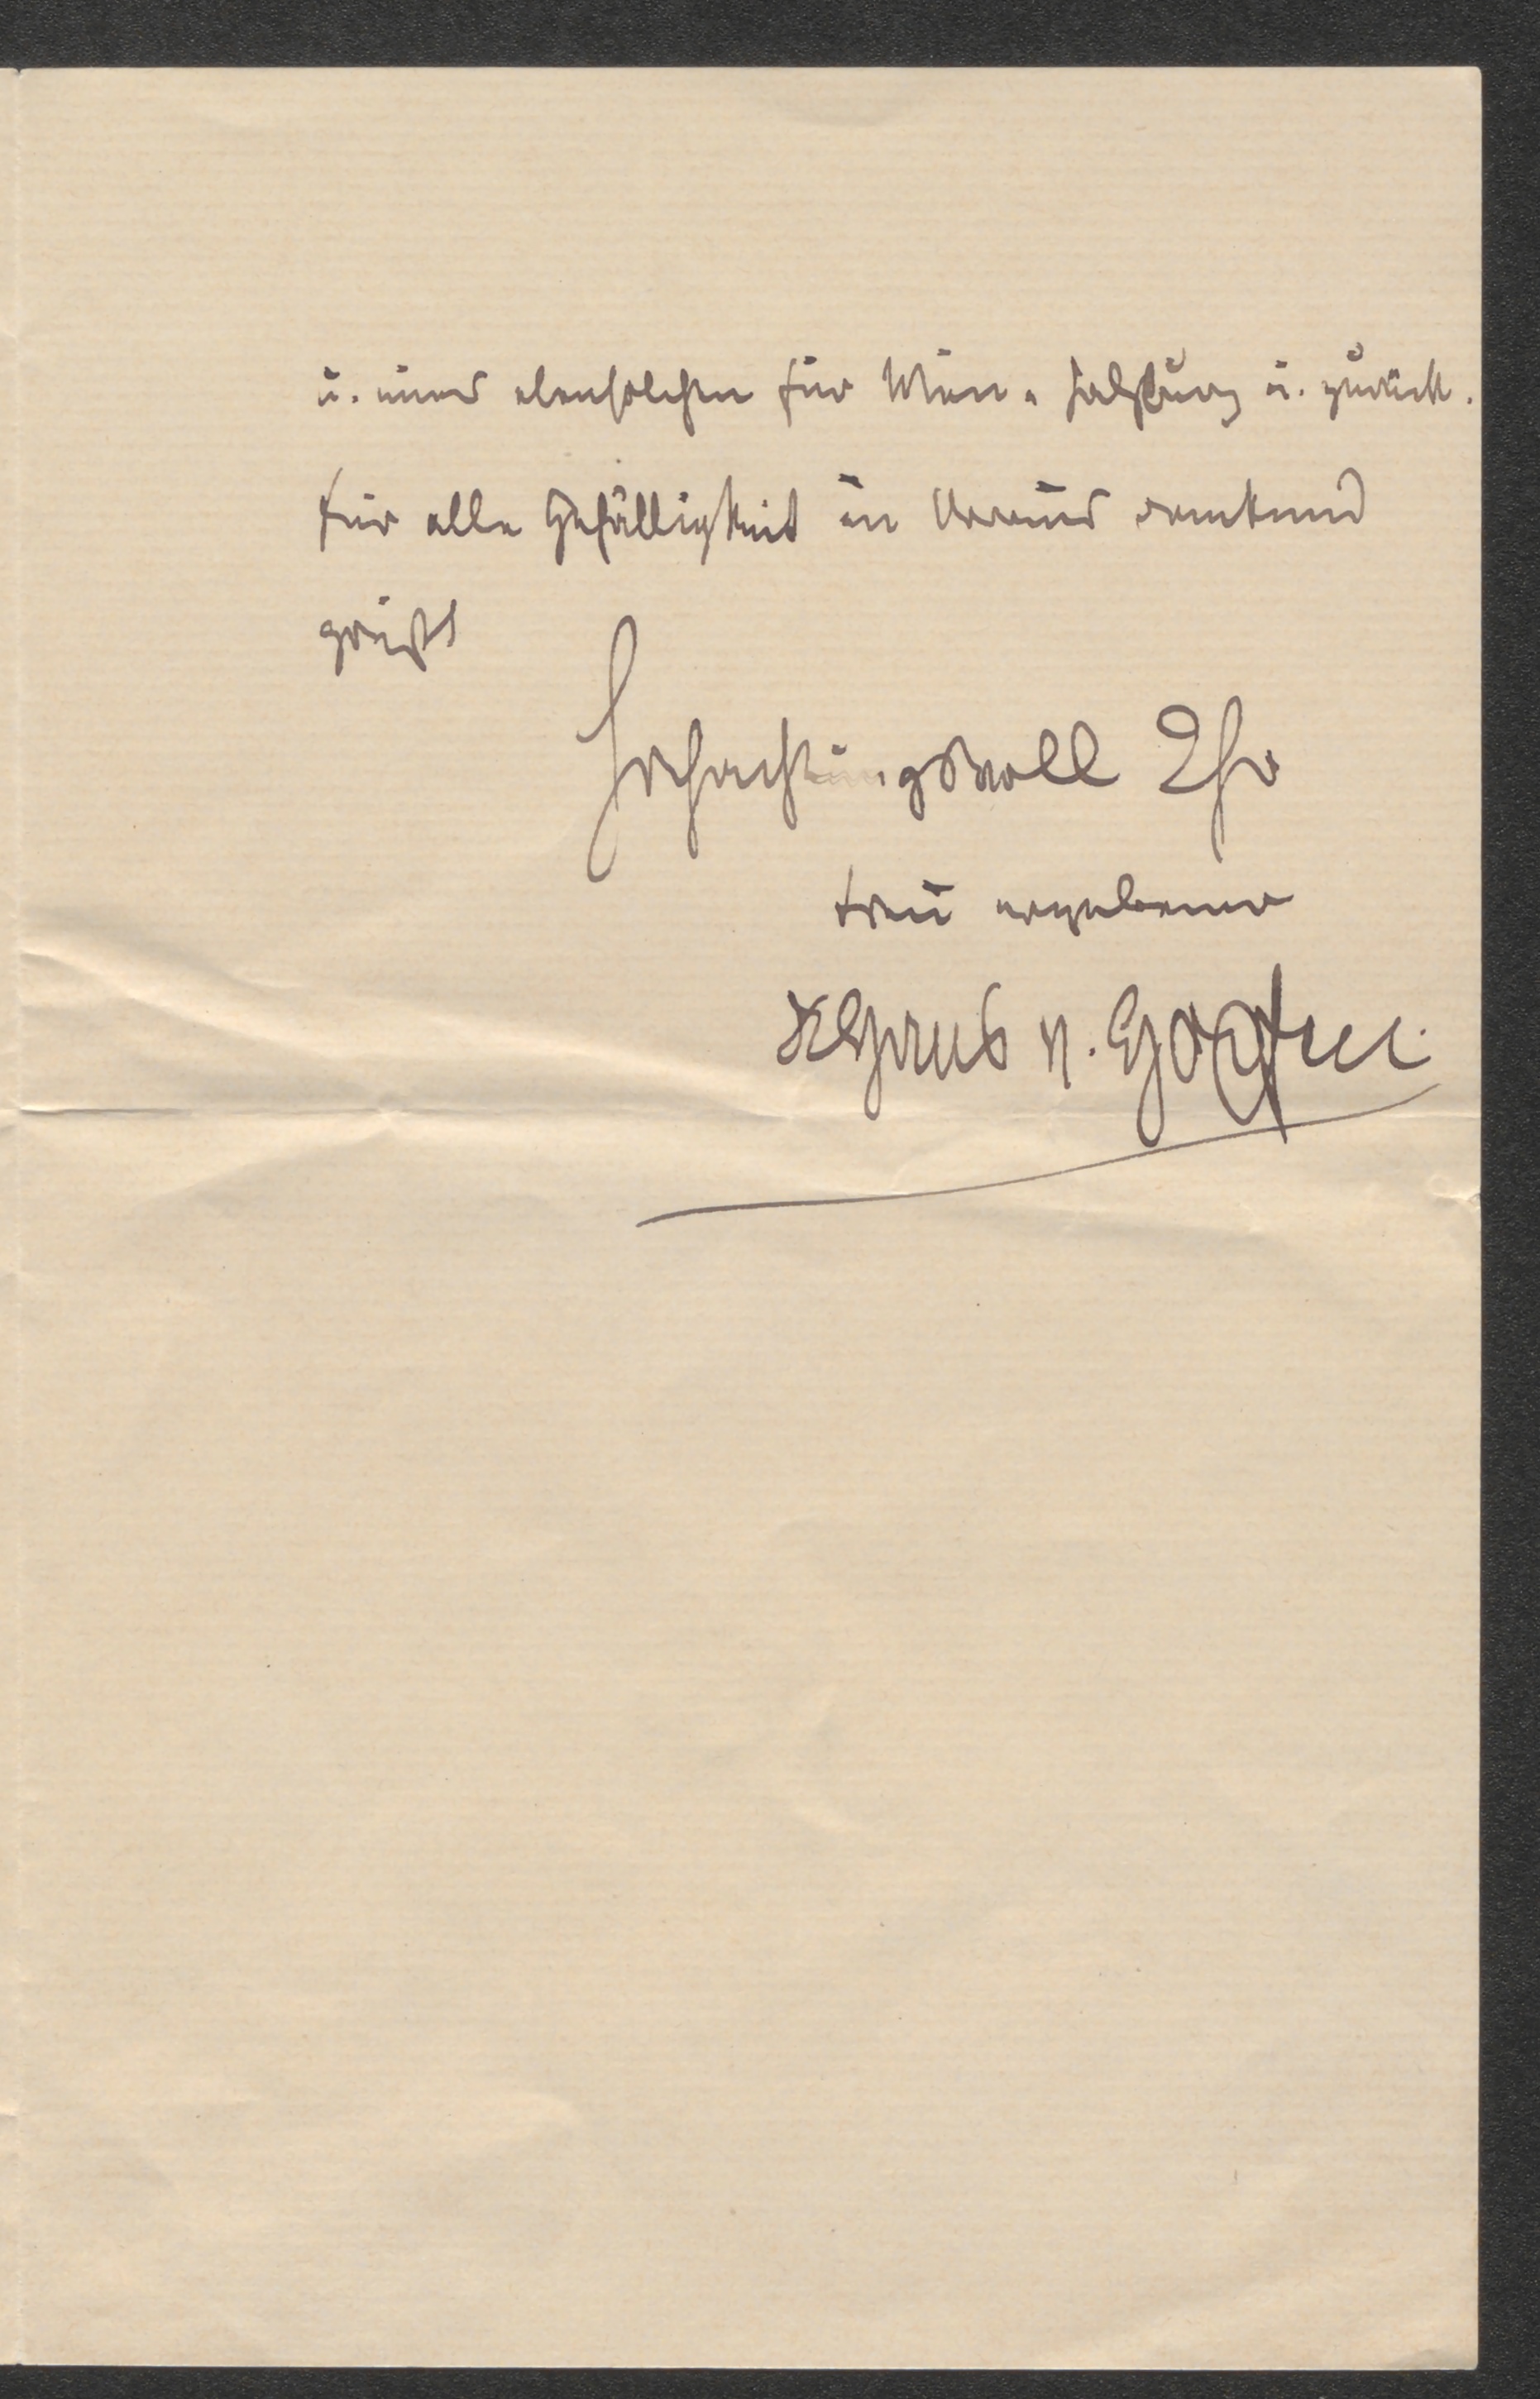 u. einer ebensolchen für Wien - Salzburg u. zurück.
Für alle Gefälligkeit im Voraus dankend
grüßt
Hochachtungsvoll Ihr
treu ergebener
v.